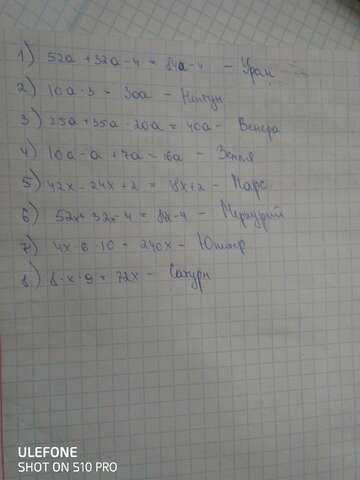 1) 52a + 32a - 4 = 84a - 4 - Уран
2) 10a · 3 = 30a - Нептун
3) 25a + 35a - 20a = 40a - Венера
4) 10a - a + 7a = 16a - Земля
5) 42x - 24x + 2 = 18x + 2 - Марс
6) 52x + 32x - 4 = 84x - 4 - Меркурий
7) 4x · 6 · 10 = 240x - Юпитер
8) 8 · x · 9 = 72x - Сатурн
ULEFONE
SHOT ON S10 PRO